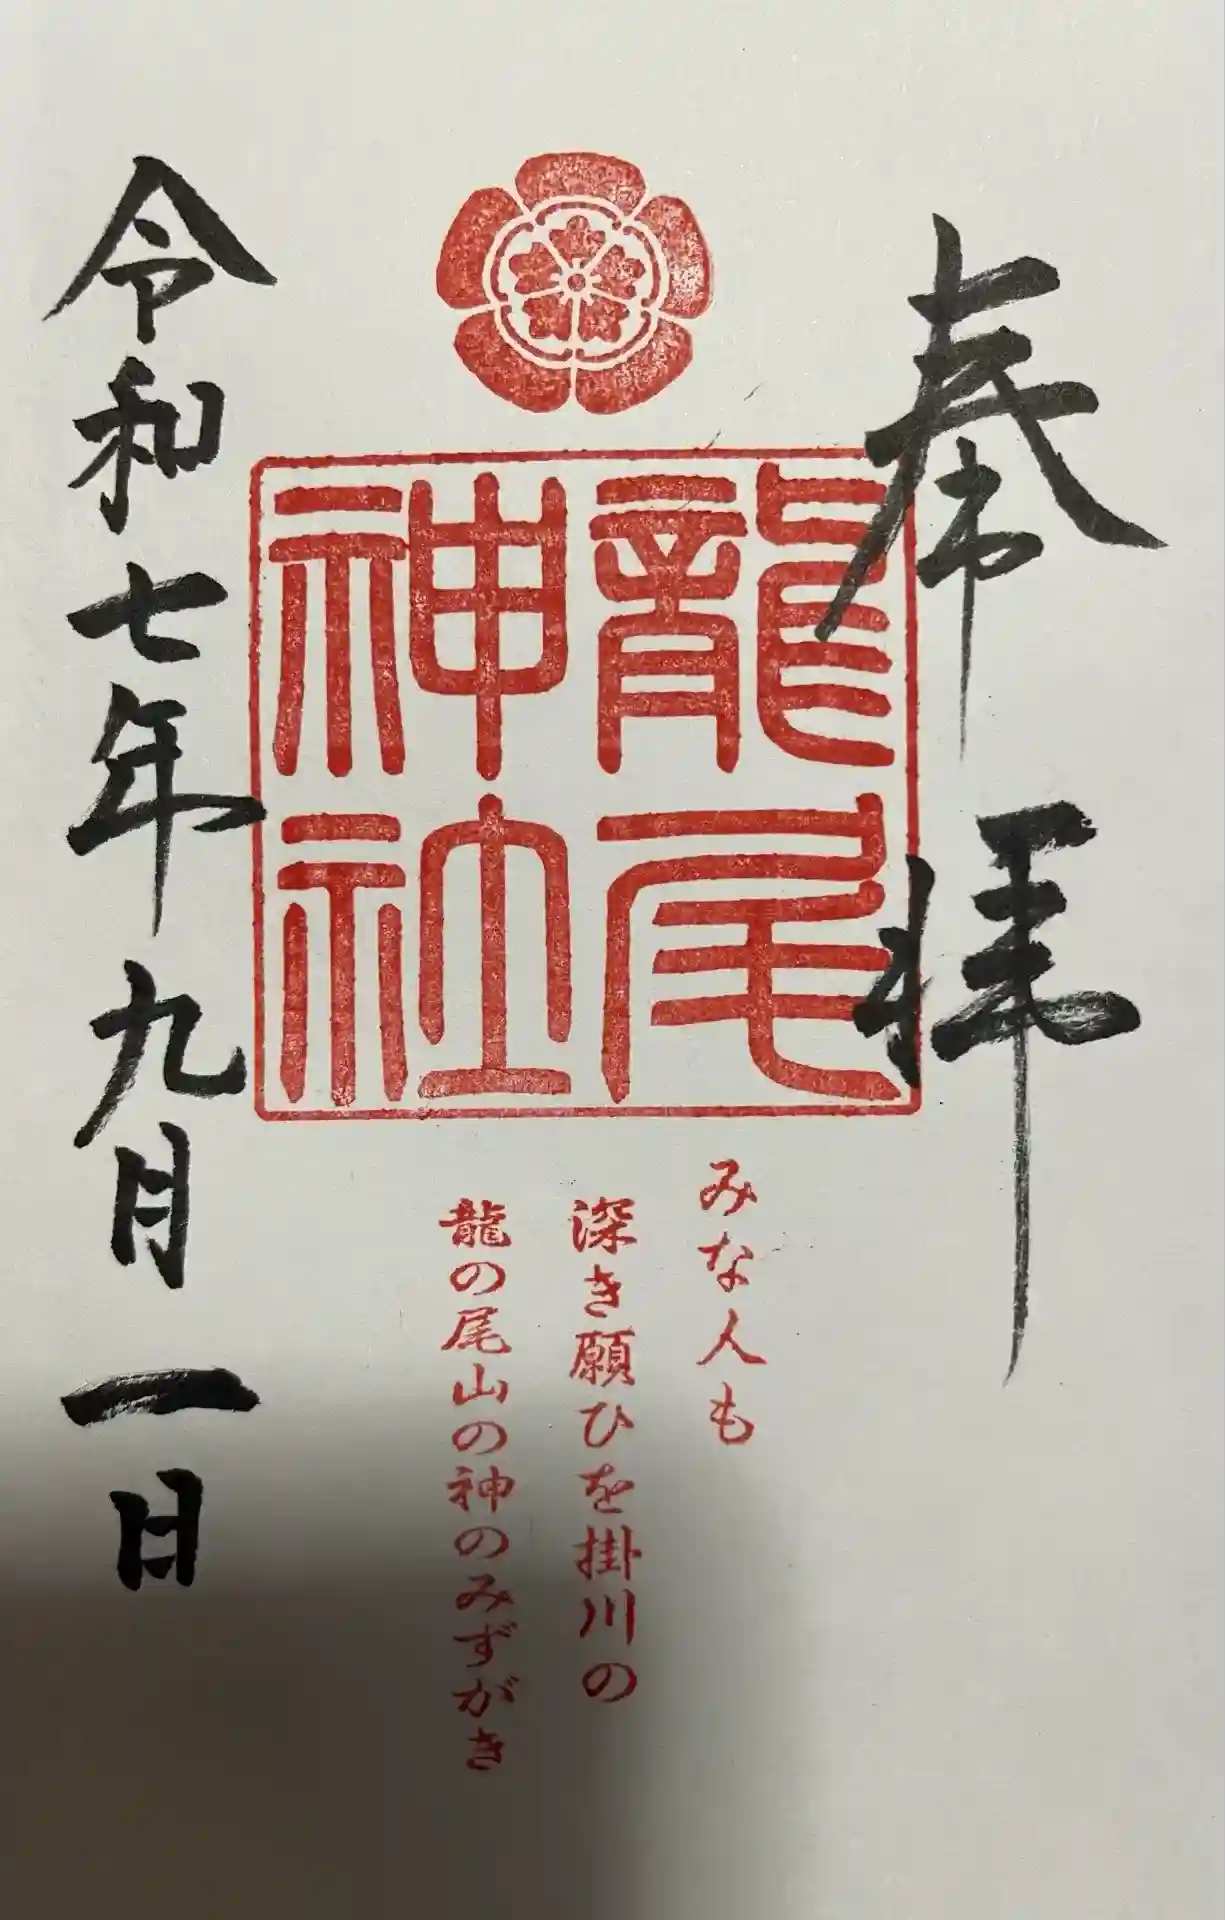 奉拝
龍尾
神社
みな人も
深き願ひを掛川の
龍の尾山の神のみずがき
令和七年九月一日